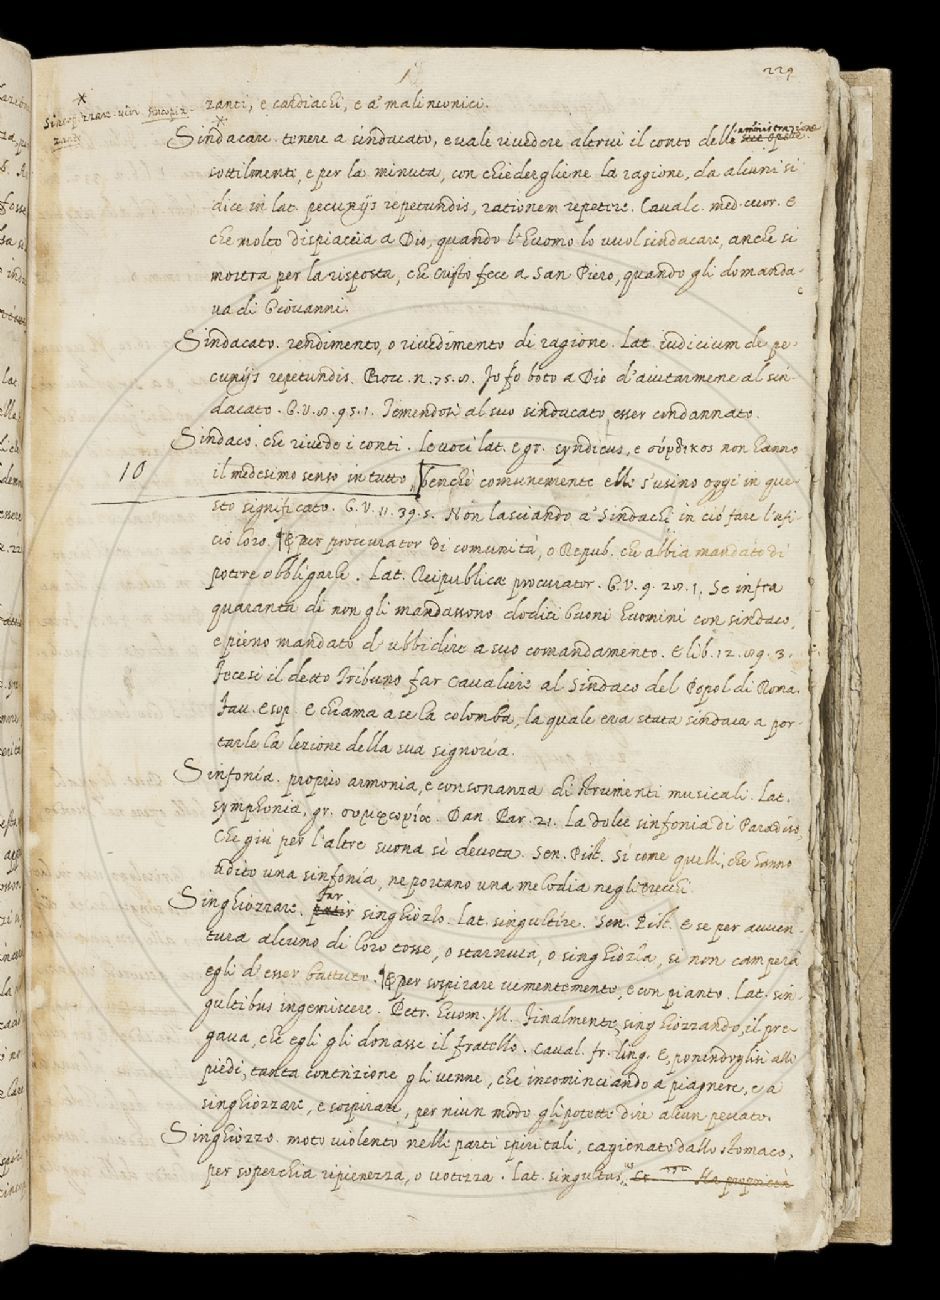 229
zanti, e cardiachi, e a' malinconici.
Sincopizzare. vin sincopiz-
zante
Sindacare. tenere a sindacato, e vale rivedere altrui il conto delle sue amministrazione
sottilmente, e per la minuta, con chiedergliene la ragione, da alcuni si
dice in lat. pecunijs repetundis, rationem repetere. Cavalc. med. cuor. E
che molto dispiaccia a Dio, quando l'huomo lo vuol sindacare, anche si
mostra per la risposta, che cristo fece a San Piero, quando gli domanda-
va di Giovanni.
Sindacato. rendimento, o rivedimento di ragione. Lat. iudicium de pe-
cunijs repetundis. Bocc. n. 75. 8. Io fo boto a Dio d'aiutarmene al sin-
dacato. G. V. 8. 95. 1. Temendosi al suo sindacato esser condannato.
Sindaco. che rivede i conti. Le voci lat. e gr. syndicus, e σύνδικος non hanno
10
il medesimo senso in tutto, benchè comunemente elle s'usino oggi in que-
sto significato. G. V. 11. 39. 5. Non lasciando a' Sindachi in ciò fare l'ufi-
cio loro. ¶ E per procurator di comunità, o Repub. che abbia mandato di
potere obbligarle. Lat. Reipublicæ procurator. G. V. 9. 28. 1. Se infra
quaranta dì non gli mandassono dodici buoni huomini con sindaco,
e pieno mandato d'ubbidire a suo comandamento. E lib. 12. 89. 3.
Fecesi il detto Tribuno far Cavaliere al Sindaco del Popol di Roma.
Fav. Esop. E chiama a se la colomba, la quale era stata sindaca a por-
tarle la lezione della sua signoria.
Sinfonía. proprio armonia, e consonanza di strumenti musicali. Lat.
symphonia, gr. συμφωνία. Dan. Par. 21. La dolce sinfonia di Paradiso,
Che giù per l'altre suona sì devota. Sen. Pist. Sì come quelli, che hanno
udito una sinfonía, ne portano una melodia negli orecchi.
Singhiozzare. far singhiozzo. Lat. singultire. Sen. Pist. E se per avven-
tura alcuno di loro tosse, o starnuta, o singhiozza, si non camperà
egli d'esser battuto. ¶ E per sospirare vementemente, e con pianto. Lat. sin-
gultibus ingemiscere. Petr. huom. Ill. Finalmente singhiozzando, il pre-
gava, che egli gli donasse il fratello. Caval. fr. ling. E, ponendoglisi alli
piedi, tanta contrizione gli venne, che incominciando a piagnere, e a
singhiozzare, e sospirare, per niun modo gli potette dire alcun peccato.
Singhiozzo. moto violento nelle parti spiritali, cagionato dallo stomaco,
per soperchia ripienezza, o votezza. Lat. singultus,